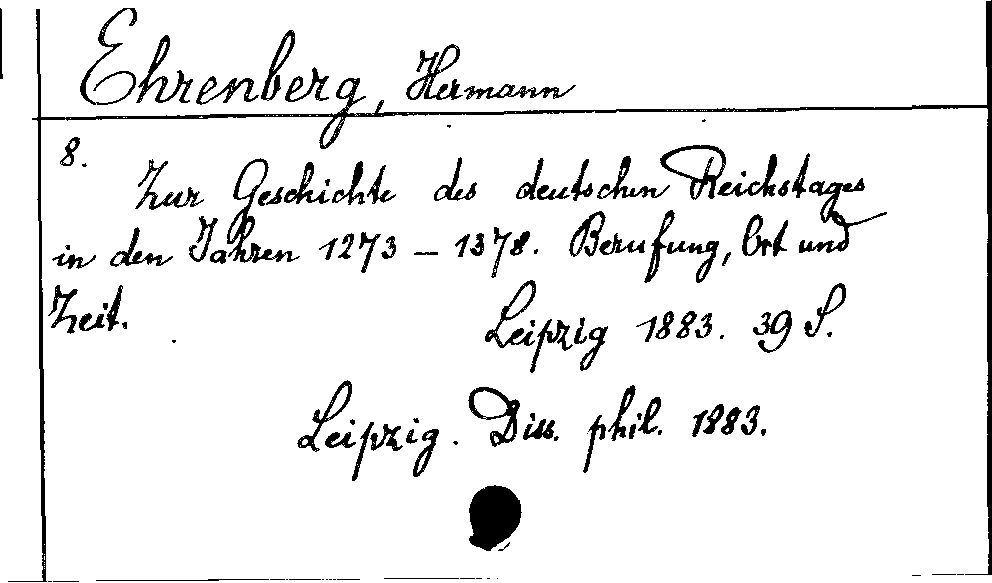 Ehrenberg, Hermann
8.
Zur Geschichte des deutschen Reichstages
in den Jahren 1273 – 1378. Berufung, Ort und
Zeit.
Leipzig 1883. 39 S.
Leipzig. Diss. phil. 1883.